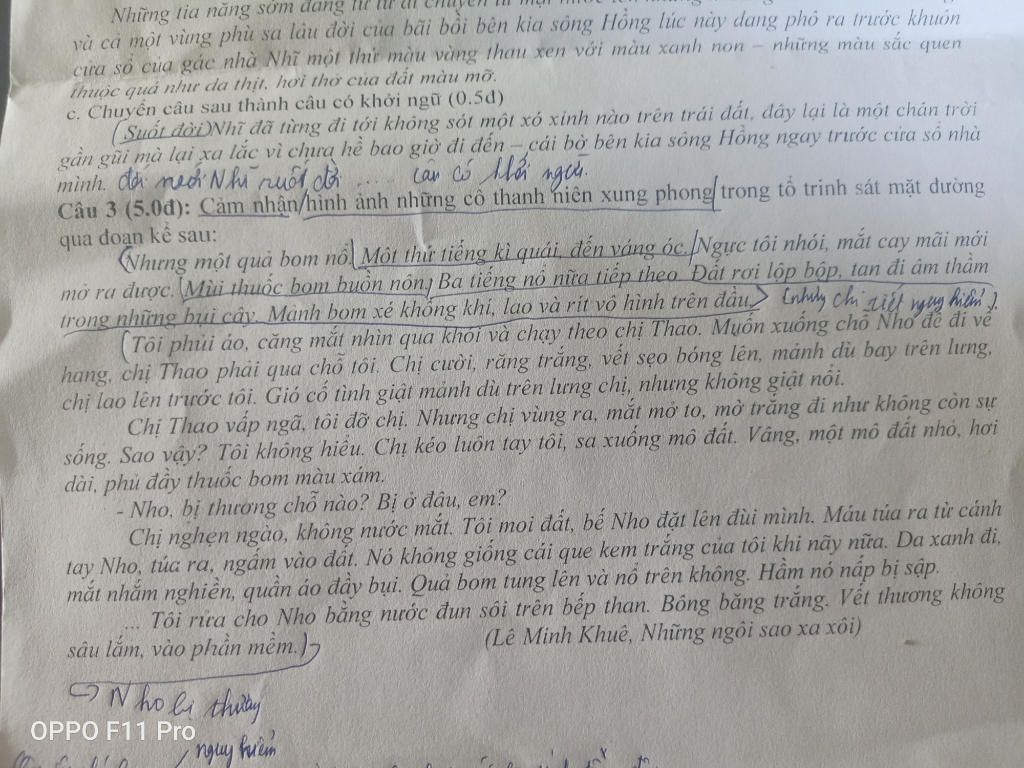 Những tia nắng sớm đang từ từ di chuyển từ mặt nước lên những
và cả một vùng phù sa lâu đời của bãi bồi bên kia sông Hồng lúc này dang phô ra trước khuôn
cửa sổ của gác nhà Nhĩ một thứ màu vàng thau xen với màu xanh non – những màu sắc quen
thuộc quá như da thịt, hơi thở của đất màu mỡ.
c. Chuyển câu sau thành câu có khởi ngữ (0.5đ)
(Suốt đời) Nhĩ đã từng đi tới không sót một xó xỉnh nào trên trái đất, đây lại là một chân trời
gần gũi mà lại xa lắc vì chưa hề bao giờ đi đến – cái bờ bên kia sông Hồng ngay trước cửa sổ nhà
mình. đối với Nhĩ suốt đời .... câu có khởi ngữ.
Câu 3 (5.0đ): Cảm nhận/hình ảnh những cô thanh niên xung phong/trong tổ trinh sát mặt đường
qua đoạn kể sau:
(Nhưng một quả bom nổ. Một thứ tiếng kì quái, đến váng óc. Ngực tôi nhói, mắt cay mãi mới
mở ra được. Mùi thuốc bom buồn nôn. Ba tiếng nổ nữa tiếp theo. Đất rơi lộp bộp, tan đi âm thầm
trong những bụi cây. Mảnh bom xé không khí, lao và rít vô hình trên đầu. (những chi tiết nguy hiểm).
(Tôi phủi áo, căng mắt nhìn qua khói và chạy theo chị Thao. Muốn xuống chỗ Nho để đi về
hang, chị Thao phải qua chỗ tôi. Chị cười, răng trắng, vết sẹo bóng lên, mảnh dù bay trên lưng,
chị lao lên trước tôi. Gió cố tình giật mảnh dù trên lưng chị, nhưng không giật nổi.
Chị Thao vấp ngã, tôi đỡ chị. Nhưng chị vùng ra, mắt mở to, mờ trắng đi như không còn sự
sống. Sao vậy? Tôi không hiểu. Chị kéo luôn tay tôi, sa xuống mô đất. Vâng, một mô đất nhỏ, hơi
dài, phủ đầy thuốc bom màu xám.
- Nho, bị thương chỗ nào? Bị ở đâu, em?
Chị nghẹn ngào, không nước mắt. Tôi moi đất, bế Nho đặt lên đùi mình. Máu túa ra từ cánh
tay Nho, túa ra, ngấm vào đất. Nó không giống cái que kem trắng của tôi khi nãy nữa. Da xanh đi,
mắt nhắm nghiền, quần áo đầy bụi. Quả bom tung lên và nổ trên không. Hầm nó nấp bị sập.
... Tôi rửa cho Nho bằng nước đun sôi trên bếp than. Bông băng trắng. Vết thương không
sâu lắm, vào phần mềm.)
(Lê Minh Khuê, Những ngôi sao xa xôi)
Nho bị thương
nguy hiểm
OPPO F11 Pro